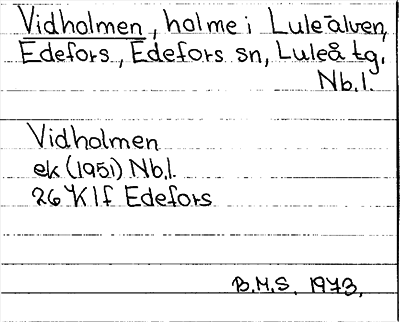 Vidholmen, holme i Lule älven,
Edefors, Edefors sn, Luleå tg.
Nb.l.
Vidholmen
ek (1951) Nb.l.
26 K l f Edefors
B.M.S. 1973.